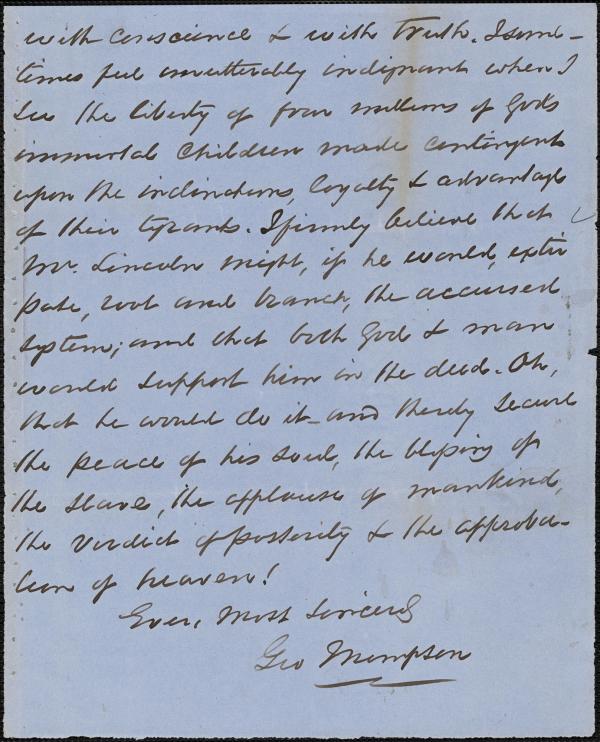 with conscience & with truth. I some-
times feel unutterably indignant when I
see the liberty of four millions of God's
immortal children made contingent
upon the inclinations, loyalty & advantage
of their tyrants. I firmly believe that
Mr. Lincoln might, if he would, extir
pate, root and branch, the accursed
system; and that both God & man
would support him in the deed. Oh,
that he would do it - and thereby secure
the peace of his soul, the blessing of
the slave, the applause of mankind,
the verdict of posterity & the approba-
tion of heaven!
Ever, most sincerely
Geo Thompson